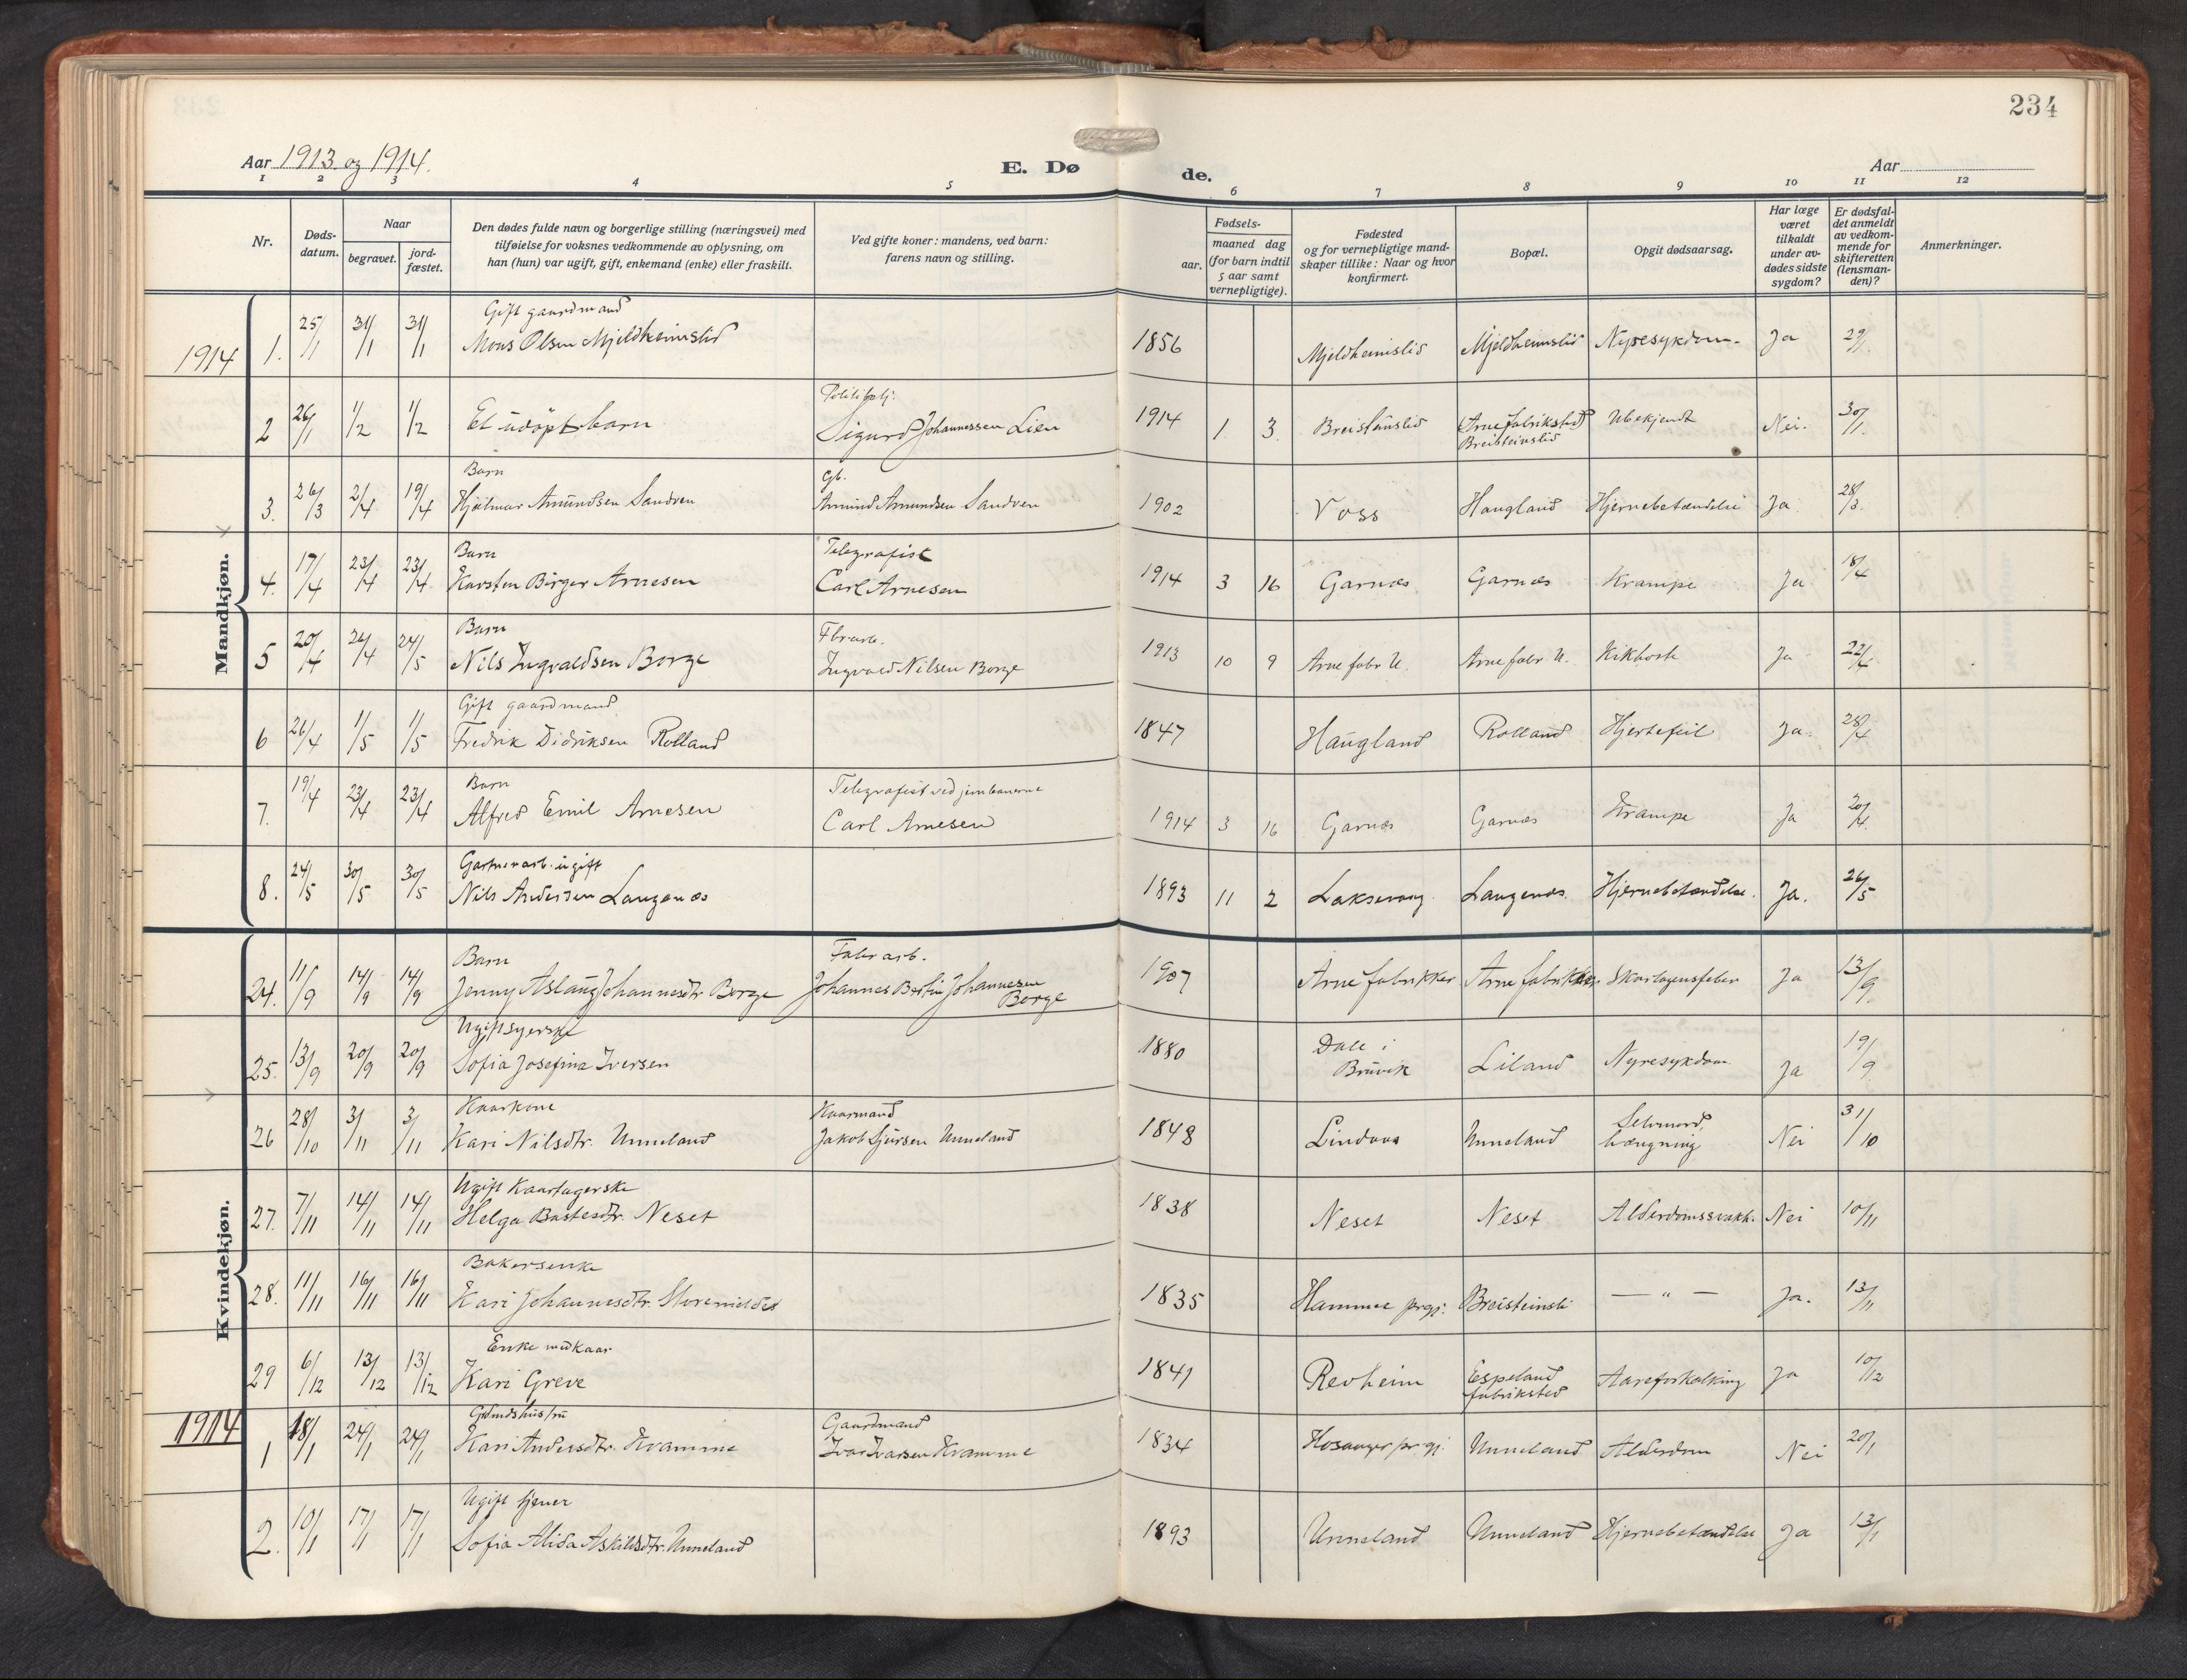 234
Aar 1913 og 1914.
E. Dø
de.
Aar
1 2 3 4 5 6 7 8 9 10 11 12
Nr.
Døds-
datum.
Naar
begravet.
jord-
fæstet.
Den dødes fulde navn og borgerlige stilling (næringsvei) med
tilføielse for voksnes vedkommende av oplysning, om
han (hun) var ugift, gift, enkemand (enke) eller fraskilt.
Ved gifte koner: mandens, ved barn:
farens navn og stilling.
Fødsels-
aar.
maaned dag
(for barn indtil
5 aar samt
vernepligtige).
Fødested
og for vernepligtige mand-
skaper tillike: Naar og hvor
konfirmert.
Bopæl.
Opgit dødsaarsag.
Har læge
været
tilkaldt
under av-
dødes sidste
sygdom?
Er dødsfal-
det anmeldt
av vedkom-
mende for
skifteretten
(lensman-
den)?
Anmerkninger.
Mandkjøn.
Gift gaardmand
1914 1. 25/1 31/1 31/1 Mons Olsen Mjeldheimslid 1856 Mjeldheimslid Mjeldheimslid Nyresykdom. Ja 29/1.
2 26/1 1/2 1/2 Et udøpt barn Sigurd Johannessen Lien 1914 1 3 Breistenslid Arne fabriksted Ubekjendt Nei. 30/1.
Breisteinslid
Barn Gb.
3. 26/3 2/4 19/4 Hjalmar Amundsen Sandven Amund Amundsen Sandven 1902 Voss Haugland Hjernebetændelse Ja. 28/3.
Barn Telegrafist
4. 17/4 23/4 23/4 Karsten Birger Arnesen Carl Arnesen 1914 3 16 Garnæs Garnæs Krampe Ja 18/4
Barn Fbrarb.
5 20/4 26/4 24/5 Nils Ingvaldsen Borge Ingvald Nilsen Borge 1913 10 9 Arne fabr. Arne fabr. Kikhoste Ja 22/4
Gift gaardmand
6 26/4 1/5 1/5 Fredrik Didriksen Rolland 1847 Haugland Rolland Hjertefeil Ja. 28/4
Barn Telegrafist ved jernbanerne
7. 19/4 23/4 23/4 Alfred Emil Arnesen Carl Arnesen 1914 3 16 Garnæs Garnæs Krampe Ja 20/4.
Gartnerarb. ugift
8. 24/5 30/5 30/5 Nils Andersen Langenæs 1893 11 2 Laksevaag Langenæs. Hjernebetændelse. Ja. 26/5
Kvindekjøn.
Barn Fabrarb.
24. 11/9 14/9 14/9 Jenny Aslaug Johannesdtr. Borge Johannes Bertin Johannesen Borge 1907 Arne fabrikker Arne fabrikker Skarlagensfeber Ja 13/9.
Ugift syerske
25. 13/9 20/9 20/9 Sofia Josefina Iversen 1880 Dale i Bruvik Liland Nyresykdom Ja 19/9
Kaarkone Kaarmand
26 28/10 3/11 3/11 Kari Nilsdtr. Unneland Jakob Sjursen Unneland 1848 Lindaas Unneland Selvmord, hængning Nei 31/10
Ugift Kaartagerske
27. 7/11 14/11 14/11 Helga Bastesdtr. Neset 1838 Neset Neset Alderdomssvakh. Nei 10/11
Bakersenke
28. 11/11 16/11 16/11 Kari Johannesdtr. Storemeldet 1835 Hammer prgj. Breisteinsli — „ — Ja. 13/11
Enke med kaar
29 6/12 13/12 13/12 Kari Greve 1841 Revheim Espeland fabriksted Aareforkalkning Ja 10/12
Gdmdshustru Gaardmand
1914 1 18/1 24/1 24/1 Kari Andersdtr. Kvamme Ivar Ivarsen Kvamme 1834 Hosanger prgj. Unneland Alderdom Nei 20/1
Ugift tjener
2. 10/1 17/1 17/1 Sofia Alida Askildsdtr. Unneland 1893 Unneland Unneland Hjernebetændelse Ja 13/1